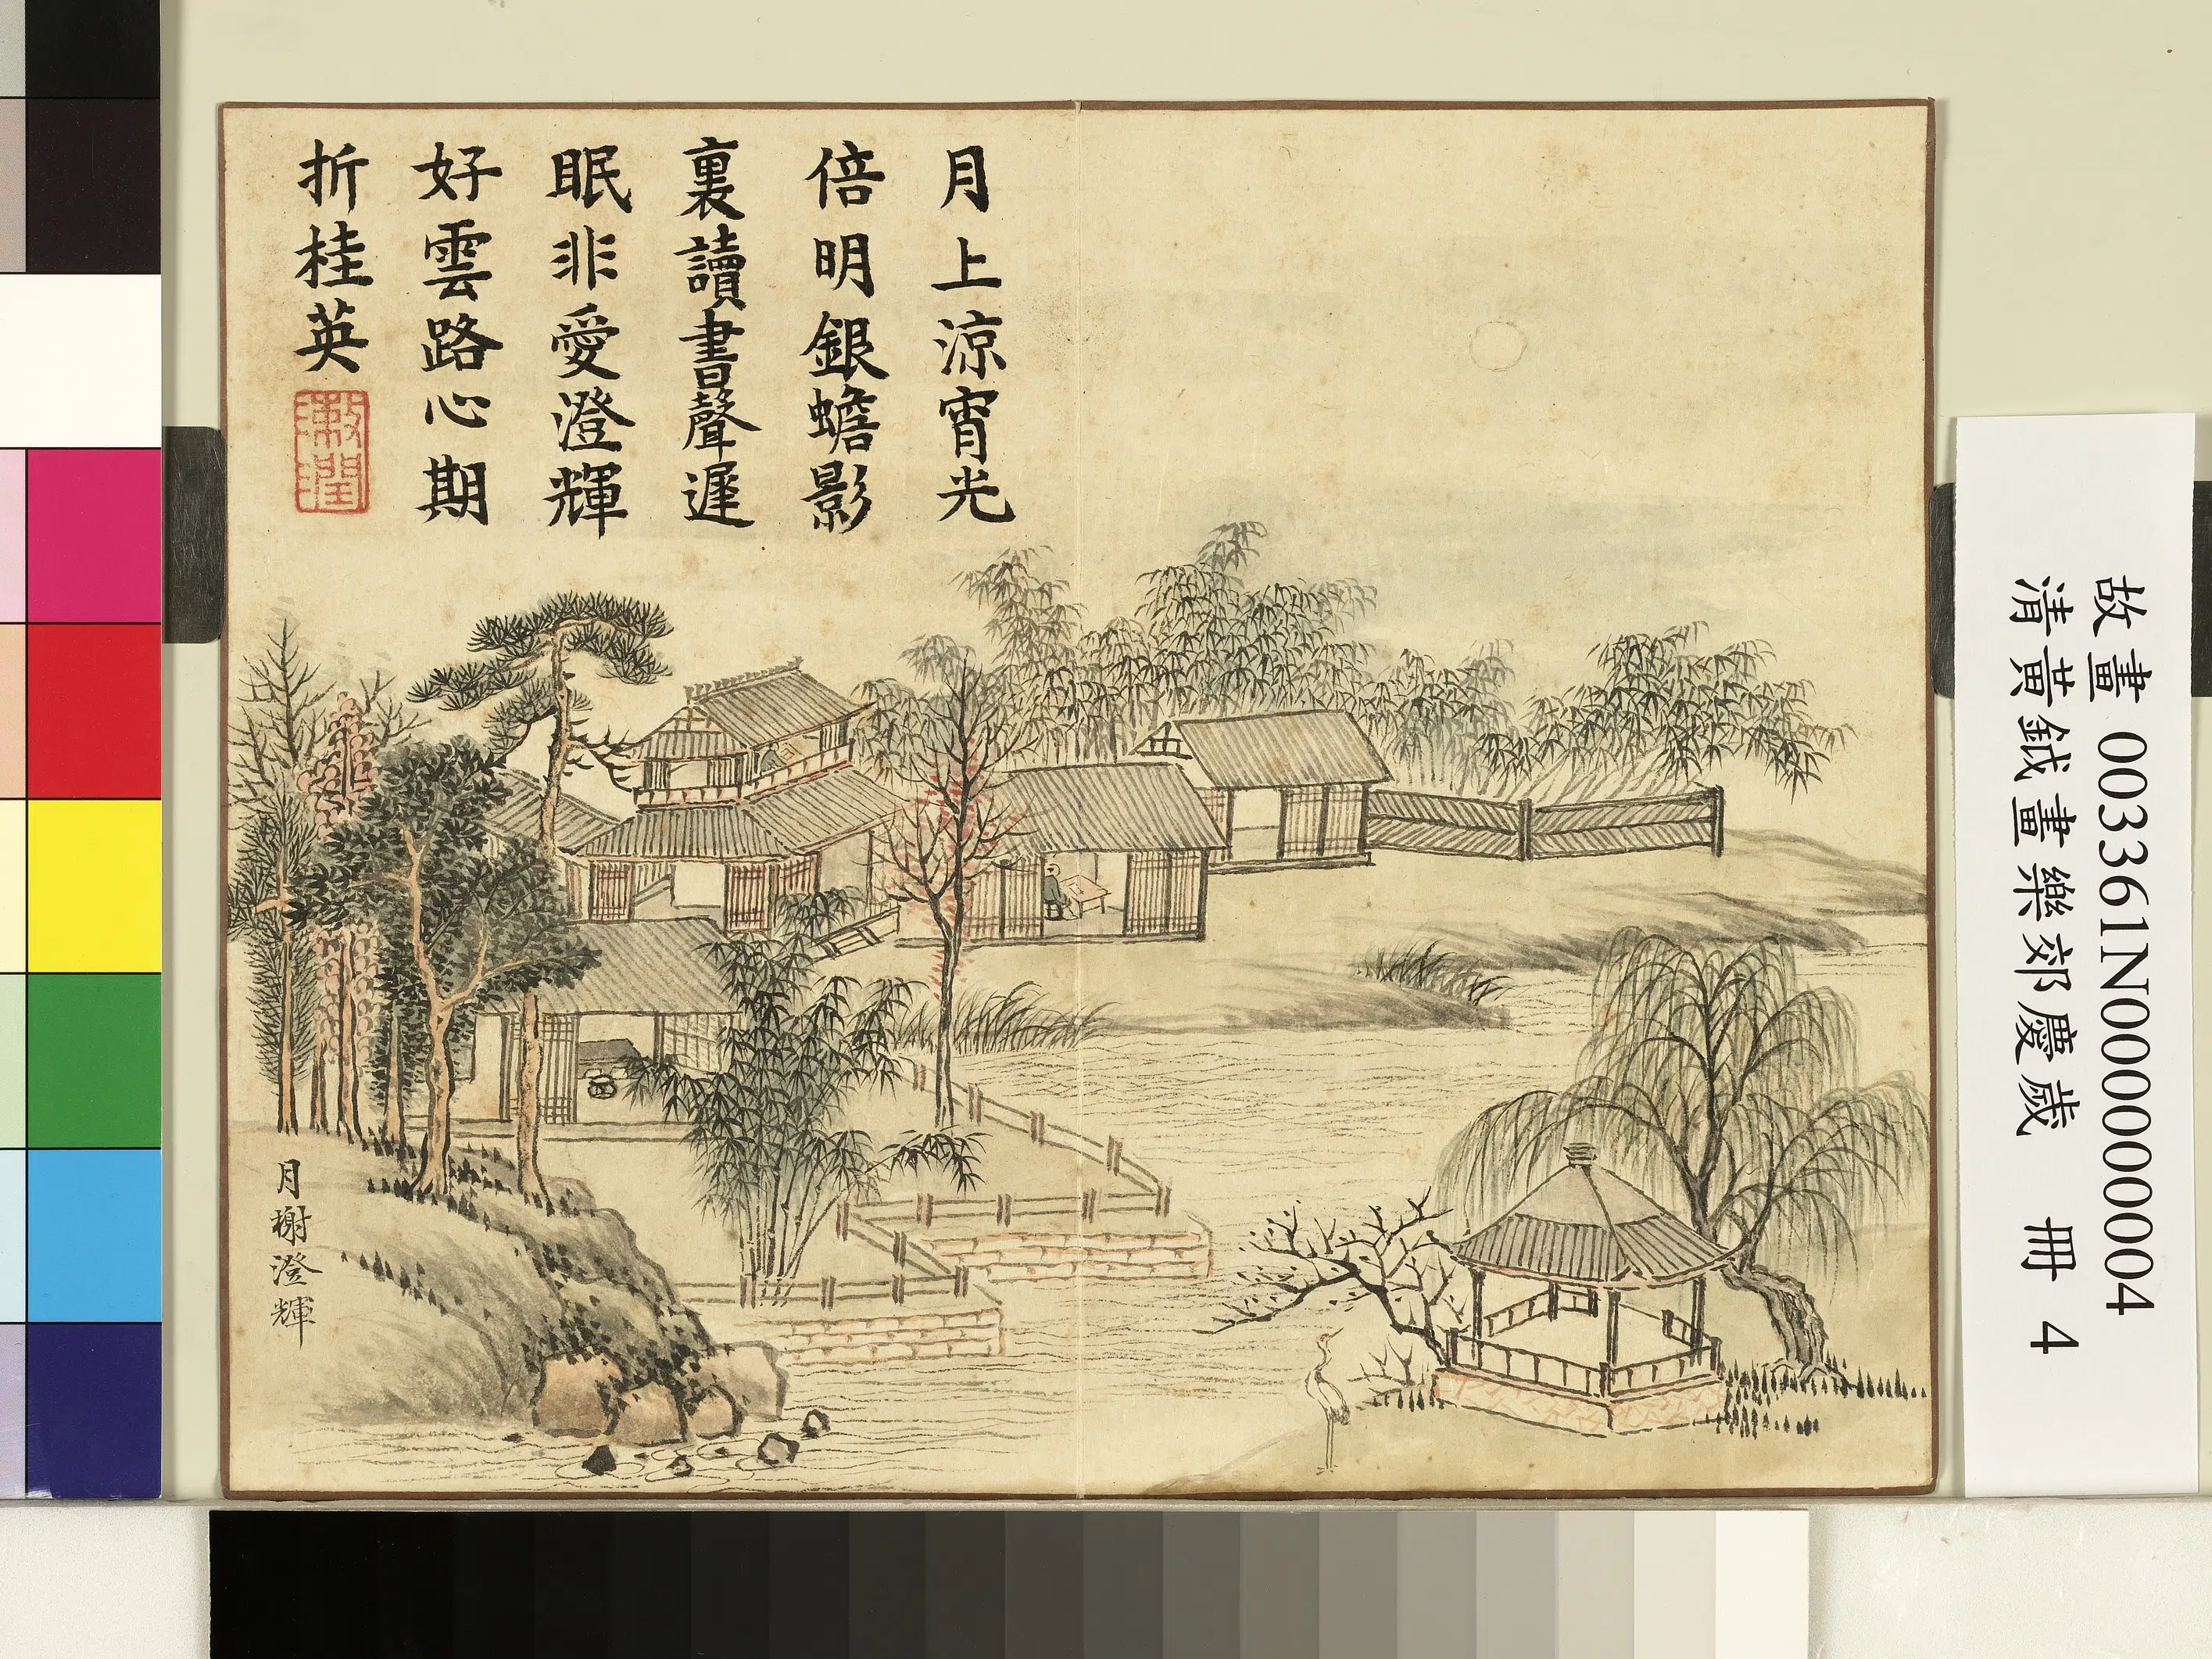 月上涼宵光
倍明銀蟾影
裏讀書聲遲
眠非愛澄輝
好雲路心期
折桂英
潤
月榭澄輝
故畫 003361N000000004
清黃鉞畫樂郊慶歲 冊 4